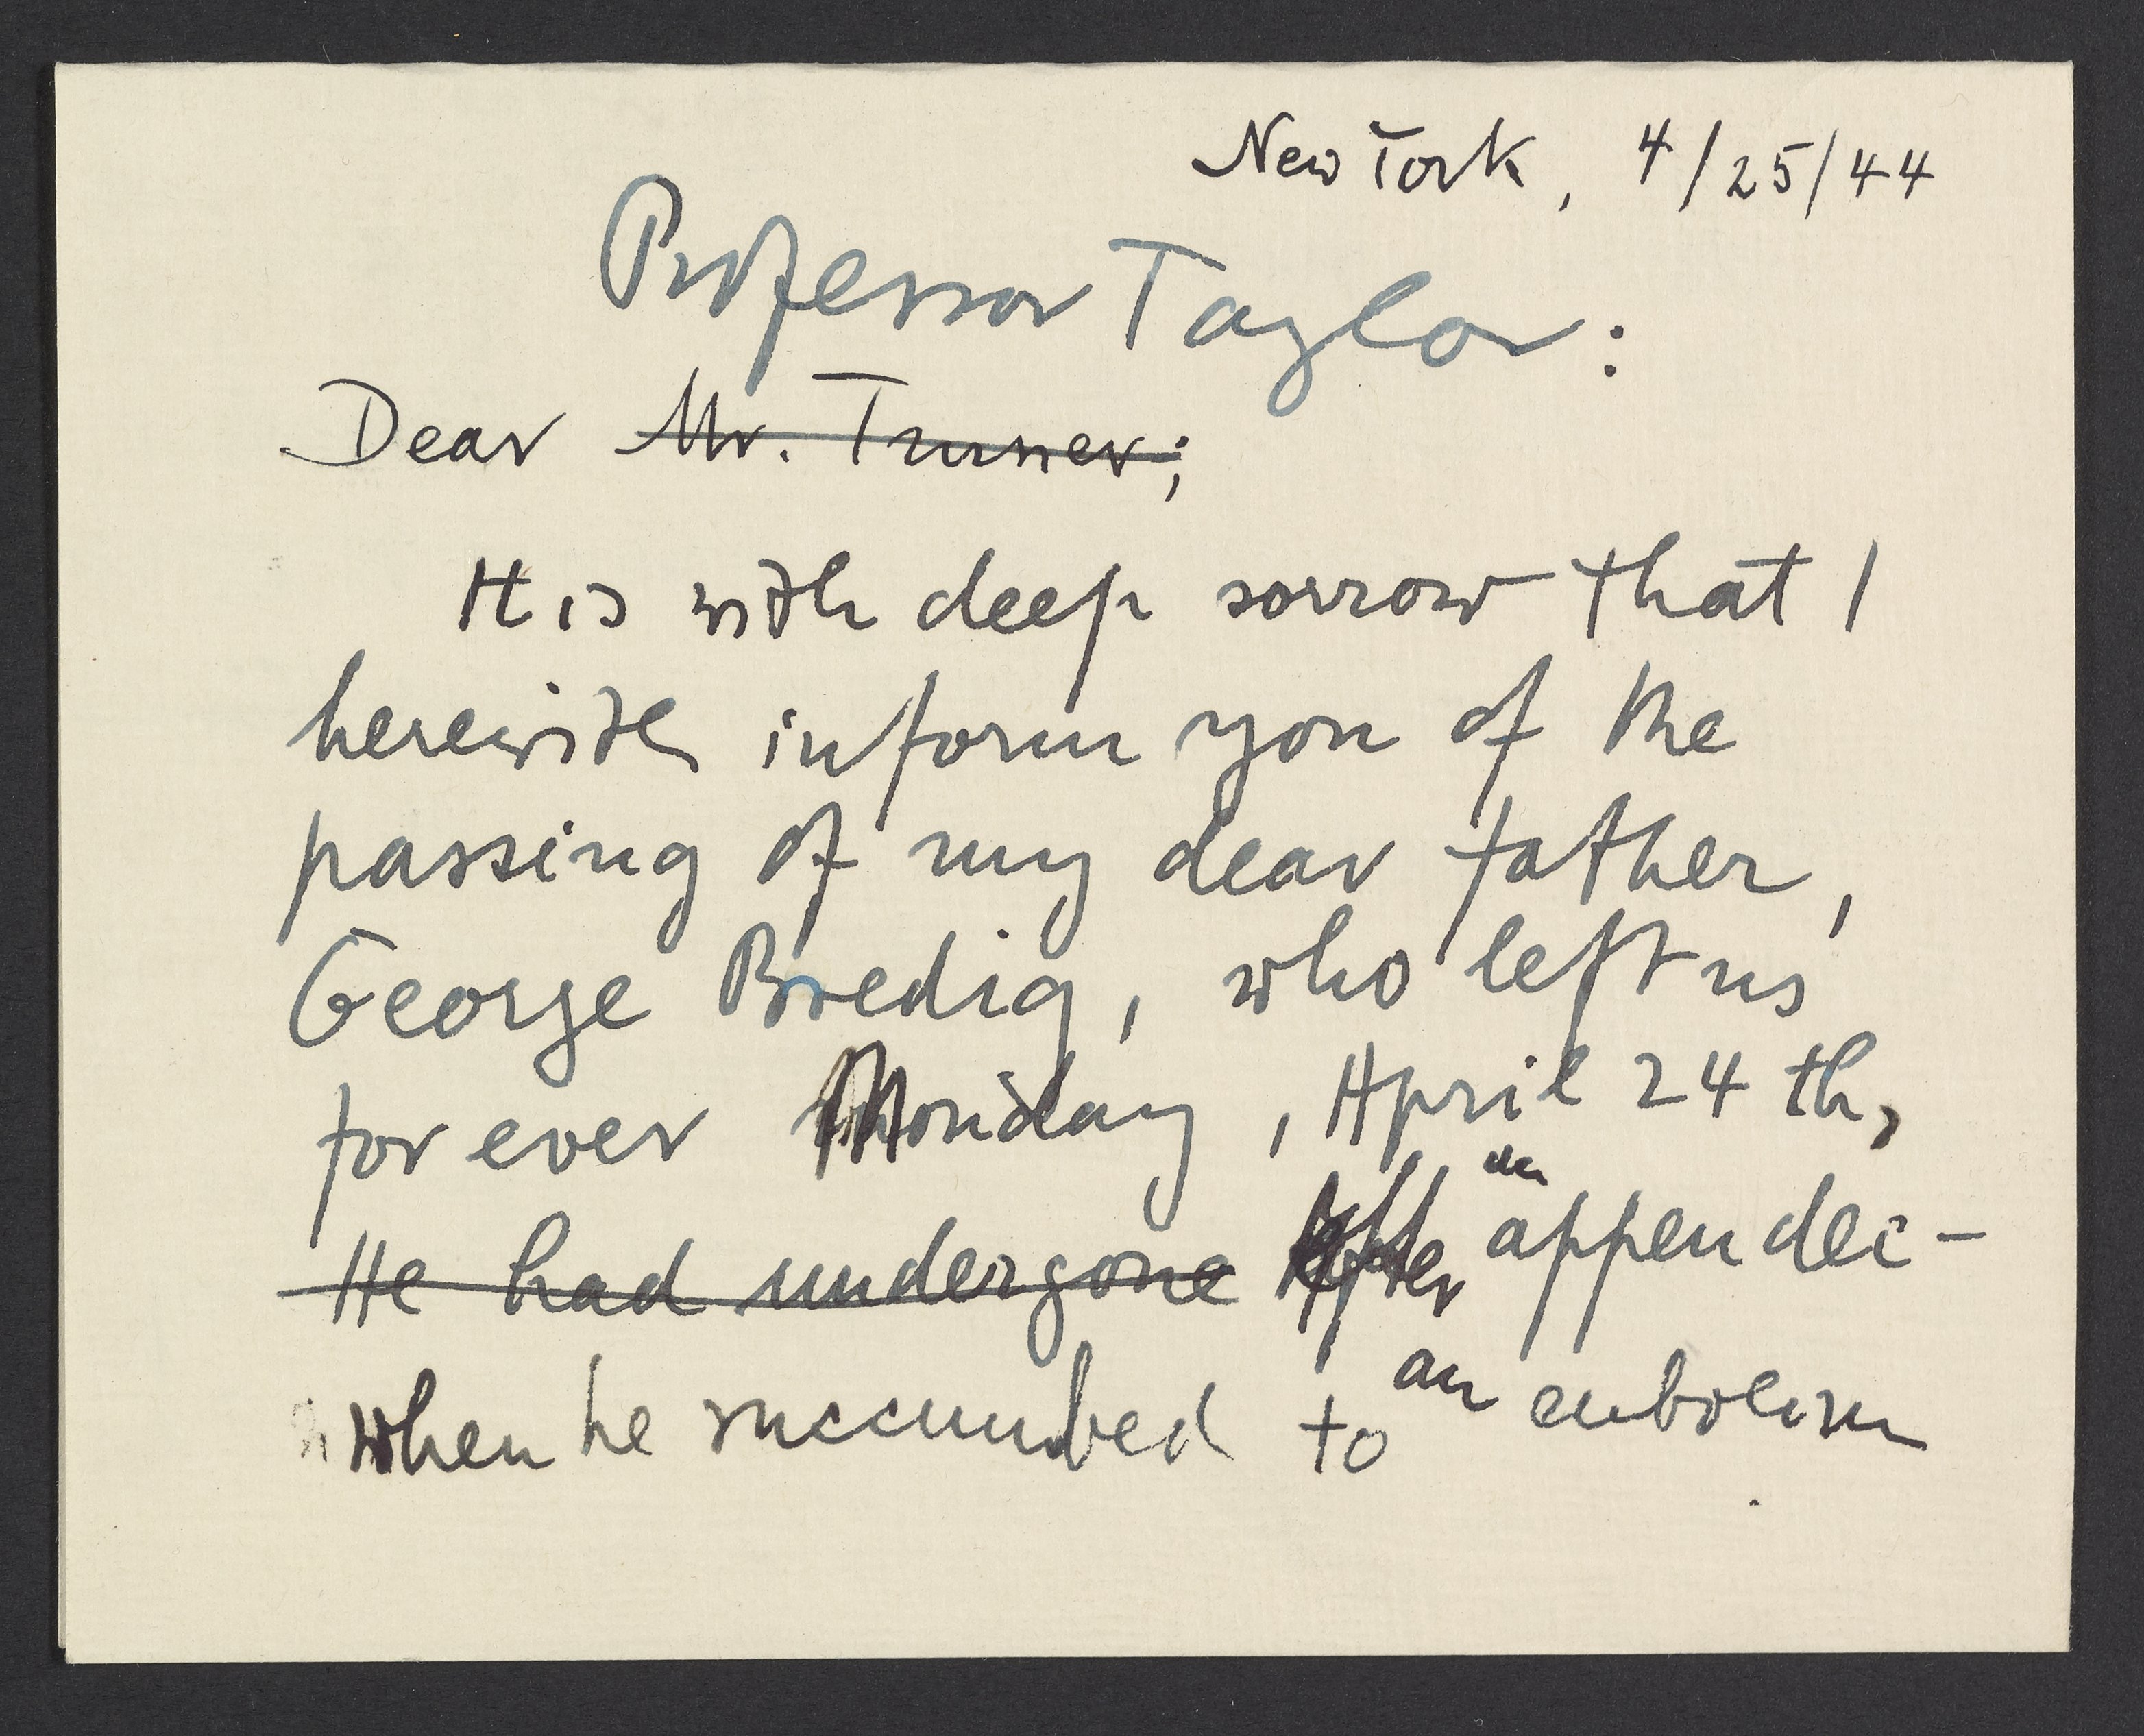 New York, 4/25/44
Professor Taylor:
Dear Mr. Turner;
It is with deep sorrow that I
herewith inform you of the
passing of my dear father,
George Bredig, who left us
for ever Monday, April 24th,
He had undergone After an appendec-
when he succumbed to an embolism